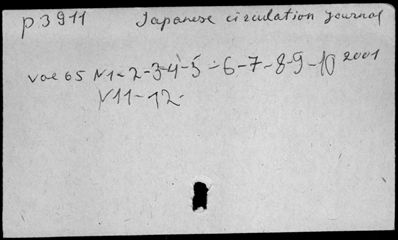 p3911 Japanese circulation journal
vol 65 N1-2-3-4-5-6-7-8-9-10 2001
N11-12-